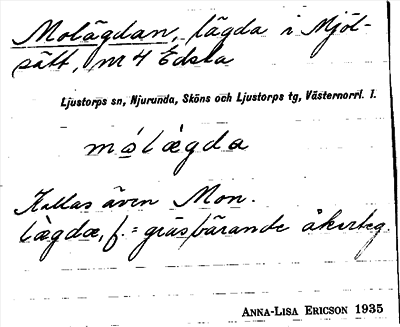 Molägdan, lägda i Mjöl-
sätt, nr 4 Edsta
Ljustorps sn, Njurunda, Sköns och Ljustorps tg, Västernorrl. l.
mólägda
Kallas även Mon.
lägdæ, f. = gräsbärande åkerteg.
ANNA-LISA ERICSON 1935